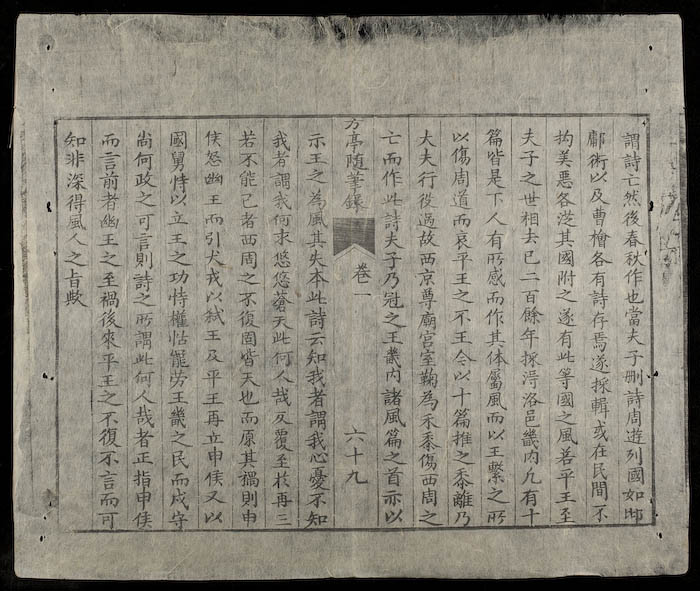 謂詩亡然後春秋作也當夫子刪詩周遊列國如邶
鄘衛以及曹檜各有詩存焉遂採輯或在民間不
拘美惡各從其國附之遂有此等國之風若平王至
夫子之世相去已二百餘年採淂洛邑畿內凢有十
篇皆是下人有所感而作其体屬風而以王繫之所
以傷周道而哀平王之不王今以十篇推之黍離乃
大夫行役過故西京尊廟宫室鞠為禾黍傷西周之
亡而作此詩夫子乃冠之王畿内諸風篇之首亦以
方亭随筆錄
卷一
六十九
示王之為風其失本此詩云知我者謂我心憂不知
我者謂我何求悠悠蒼天此何人哉反覆至於再三
若不能已者西周之不復固皆天也而原其禍則申
侯怒幽王而引犬戎以弑王及平王再立申侯又以
國舅恃以立王之功恃權怙寵劳王畿之民而戍守
尚何政之可言則詩之所謂此何人哉者正指申侯
而言前者幽王之至禍後來平王之不復不言而可
知非深得風人之旨欤